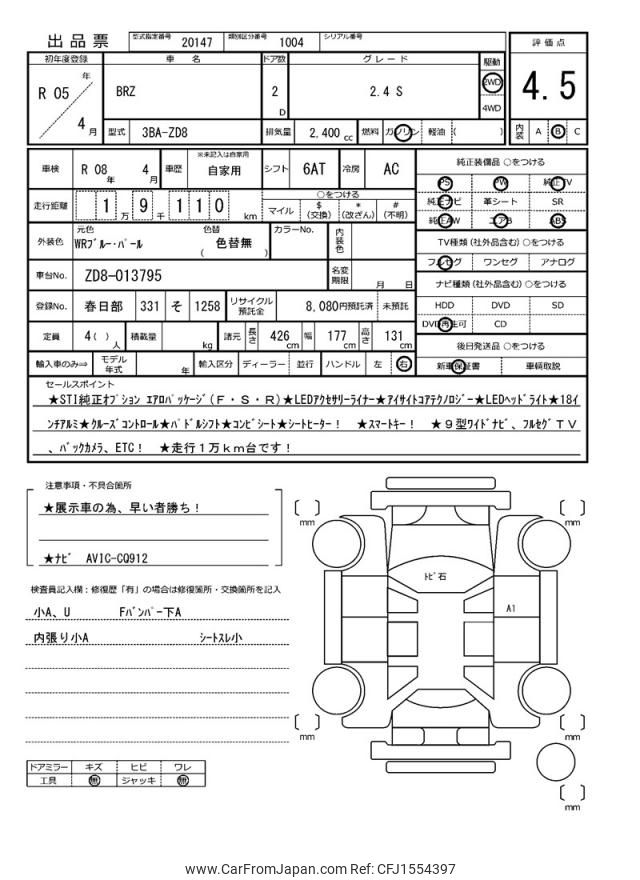 出品票 型式指定番号 20147 類別区分番号 1004 シリアル番号
評価点
初年度登録 車名 ドア数 グレード 駆動
R 05 年 4 月 BRZ 2 D 2.4 S 2WD 4WD
4.5
型式 3BA-ZD8 排気量 2,400 cc 燃料 ガソリン 軽油 ( )
内装 A B C
車検 R 08 年 4 月 車歴 ※未記入は自家用 自家用 シフト 6AT 冷房 AC
純正装備品 ○をつける
PS PW 純正TV
純正ナビ 革シート SR
純正AW エアB ABS
走行距離 1 万 9 千 1 1 0 km
○をつける
マイル $ (交換) * (改ざん) # (不明)
TV種類 (社外品含む) ○をつける
フルセグ ワンセグ アナログ
外装色 元色 WRブルー・パール 色替 ( 色替無 ) カラーNo. 内装色
ナビ種類 (社外品含む) ○をつける
HDD DVD SD
DVD再生可 CD
車台No. ZD8-013795 名変期限 月 日
登録No. 春日部 331 そ 1258 リサイクル預託金 8,080円預託済 未預託
定員 4( ) 人 積載量 kg 諸元 長さ 426 cm 幅 177 cm 高さ 131 cm
後日発送品 ○をつける
新車保証書 車輌取説
輸入車のみ⇒ モデル年式 年 輸入区分 ディーラー 並行 ハンドル 左 右
セールスポイント
★STI純正オプション エアロパッケージ(F・S・R)★LEDアクセサリーライナー★アイサイトコアテクノロジー★LEDヘッドライト★18イ
ンチアルミ★クルーズコントロール★パドルシフト★コンビシート★シートヒーター! ★スマートキー! ★9型ワイドナビ、フルセグTV
、バックカメラ、ETC! ★走行1万km台です!
注意事項・不具合箇所
★展示車の為、早い者勝ち!
★ナビ AVIC-CQ912
検査員記入欄:修復歴「有」の場合は修復箇所・交換箇所を記入
小A、U Fバンパー下A
内張り小A シートスレ小
ドアミラー キズ ヒビ ワレ
工具 無 ジャッキ 無
mm mm
トビ石
A1
mm mm
mm
www.CarFromJapan.com Ref: CFJ1554397